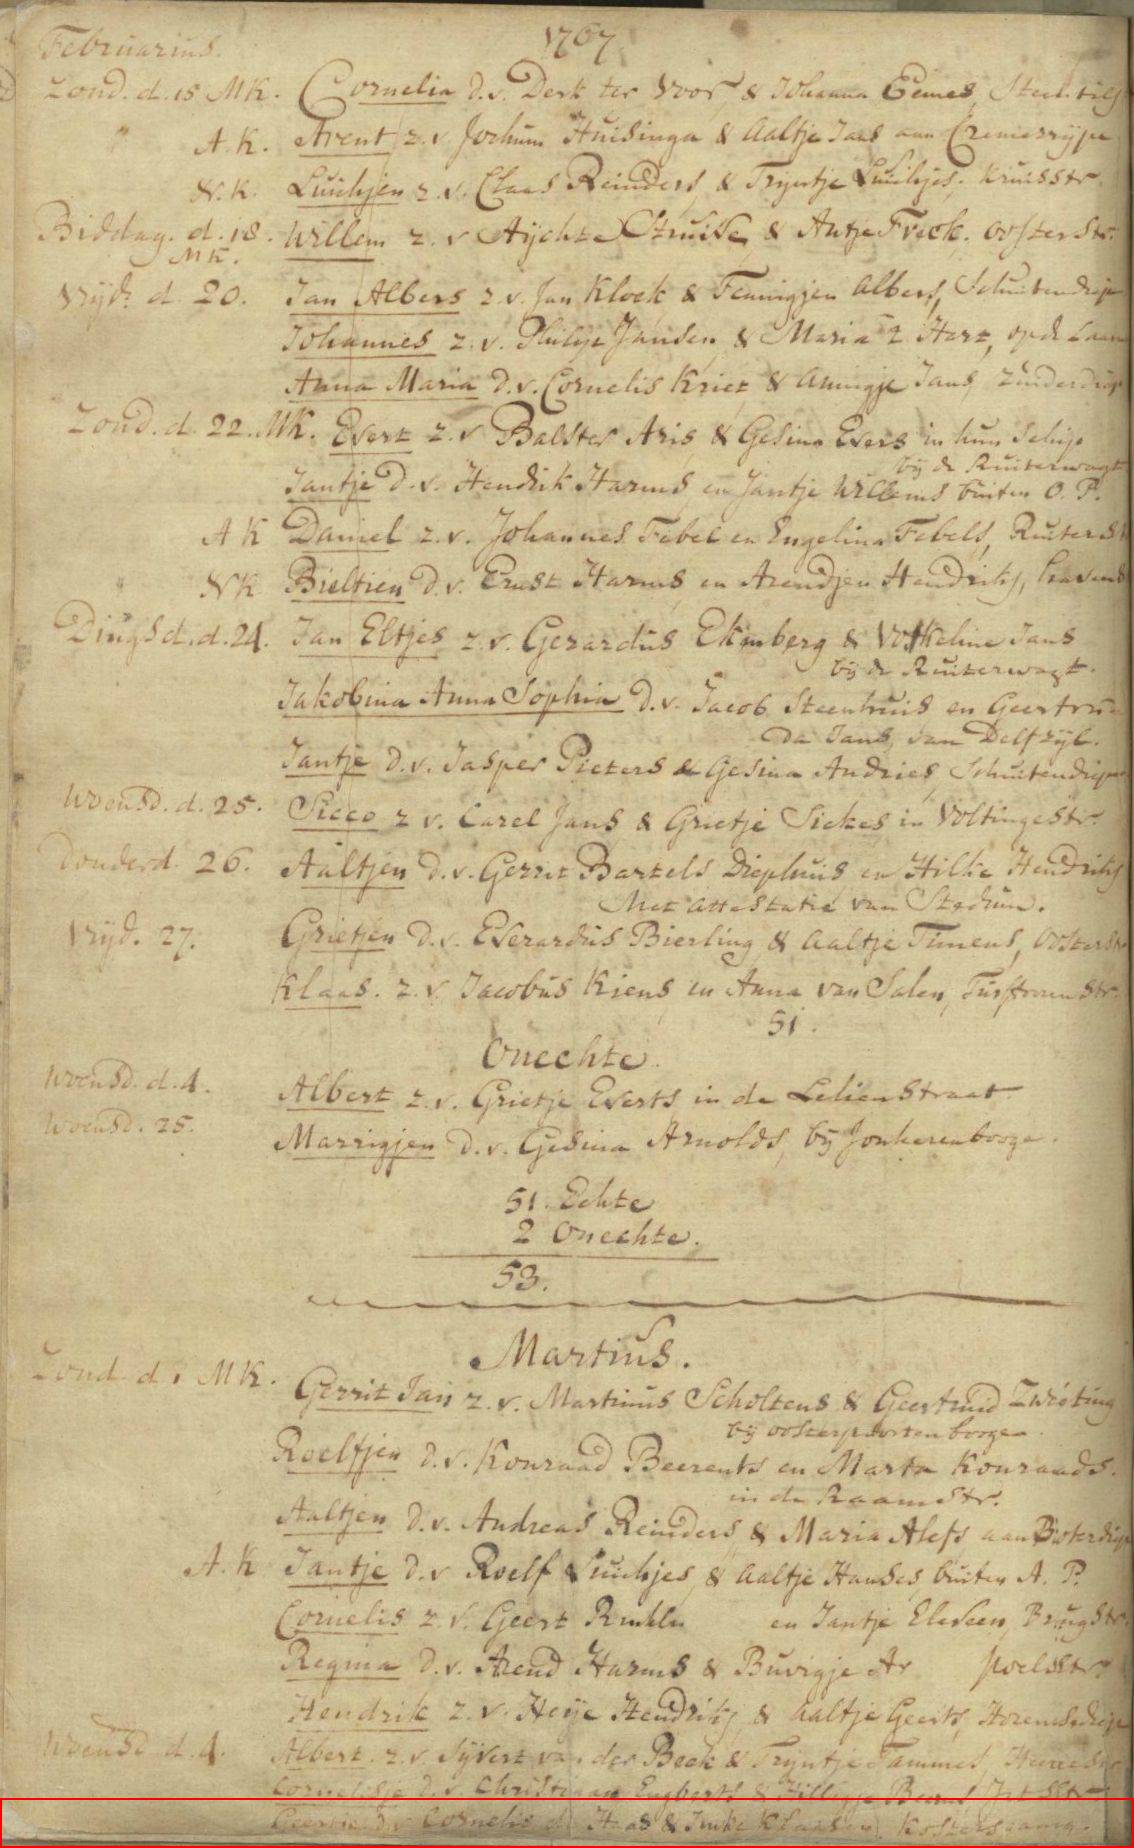 1767
Februarius.
Zond. d. 15 MK. Cornelia d.v. Derk ter Voor, & Johanna Eemes,
A.K. Arent z.v. Jochum Huisinga & Aaltje Jans aan
N.K. Luichjen z.v. Claas Reinders, & Trijntje Luichjes. Kruisstr.
Biddag. d. 18. Willem z.v. Aijchte Struise, & Antje Freek. Oosterstr.
MK.
Vrijd. d. 20. Jan Albers z.v. Jan Klock & Fennigjen Albers, Schuitendiep
Johannes z.v. Philip Jansen, & Maria 't Hart, op de Laan
Anna Maria d.v. Cornelis Kriet & Annigje Jans Zuiderdiep
Zond. d. 22. MK. Evert z.v. Balster Aris & Gesina Evers in hun schip
bij de Ruiterwagt
Jantje d.v. Hendrik Harms en Jantje Willems buiten O.P.
A K Daniel z.v. Johannes Febel en Engelina Febels, Ruiterst
NK Bieltien d.v. Ernst Harms en Arendjen Hendriks,
Dingsd. d. 24. Jan Eltjes z.v. Gerardus Ekenberg & Volkeline Jans
bij de Ruiterwagt.
Jakobina Anna Sophia d.v. Jacob Steenhuis en Geertruida
Jans, van Delfzyl.
Jantje d.v. Jasper Pieters & Gesina Andries, Schuitendiep
Woensd. d. 25. Sicco z v. Carel Jans & Grietje Sickes in Voltingestr.
Donderd. 26. Aaltjen d.v. Gerrit Bartels Diephuis, en Hilke Hendriks
Met attestatie van Stedum.
Vrijd. 27. Grietjen d.v. Everardus Bierling, & Aaltje Timens, Oosterstr
Klaas. z.v. Jacobus Kiens en Anna van Salen, Turftorenstr.
51.
Onechte.
Woensd. d. 4. Albert z.v. Grietje Everts in de Leliënstraat
Woensd. 25. Marrigjen d.v. Gesina Arnolds, bij Jonkerenbooge.
51. Echte
2 Onechte.
53.
Martius.
Zond d 1 MK. Gerrit Jan z.v. Martinus Scholtens & Geertruid Zwieting
bij oosterpoortenbooge.
Roelfjen d.v. Konraad Beerents en Marta Konraads.
in de Raamstr.
Aaltjen d.v. Andreas Reinders, & Maria Alefs aan Boterdiep
A.K Jantje d.v Roelf Luichjes, & Aaltje Hanses, buiten A.P.
Cornelis z.v. Geert en Jantje Brugstr.
Regina d.v. Arend Harms & Buvigje Ar poelstr.
Hendrik z.v. Heije Hendriks & Aaltje Geerts,
Woensd d. 4. Albert. z.v. Sijvert van der Beek & Trijntje Tammes,
Cornelisje d.v. Christiaan Engberts & Hilligje
Geertje d.v. Cornelis de Haas & Imke Klaasen, Kostersgang.